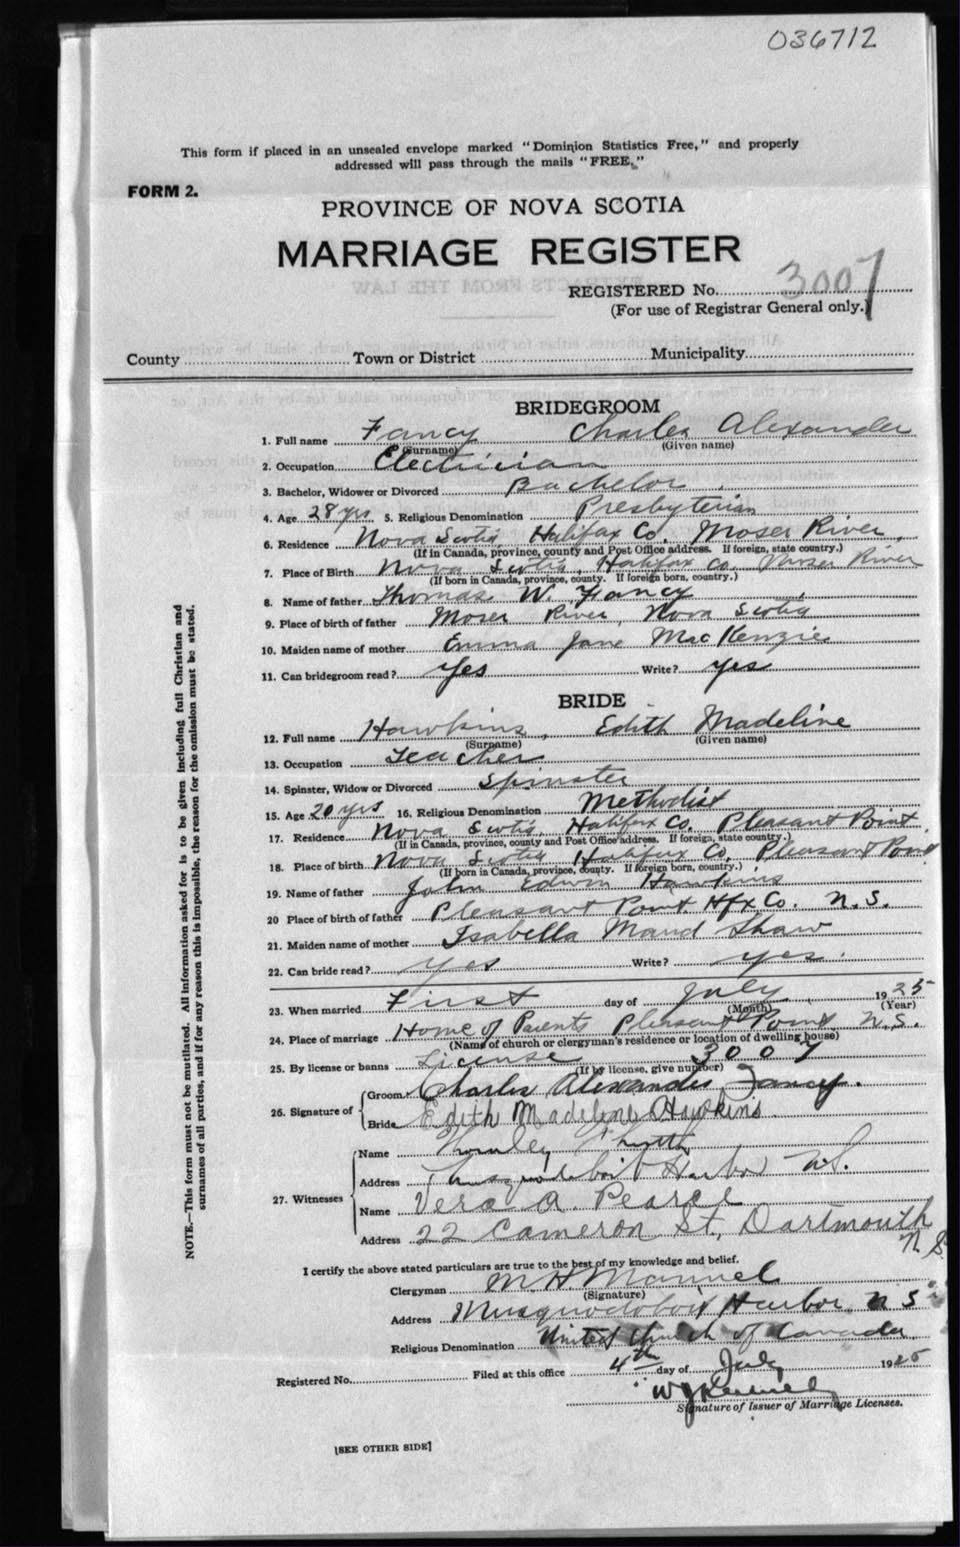 036712
This form if placed in an unsealed envelope marked "Dominion Statistics Free," and properly
addressed will pass through the mails "FREE."
FORM 2.
PROVINCE OF NOVA SCOTIA
MARRIAGE REGISTER
REGISTERED No. 3007
(For use of Registrar General only.)
County Town or District Municipality
BRIDEGROOM
1. Full name Fancy Charles Alexander
(Surname) (Given name)
2. Occupation Electrician
3. Bachelor, Widower or Divorced Bachelor
4. Age 28 yrs 5. Religious Denomination Presbyterian
6. Residence Nova Scotia, Halifax Co. Moser River
(If in Canada, province, county and Post Office address. If foreign, state country.)
7. Place of Birth Nova Scotia, Halifax Co. Moser River
(If born in Canada, province, county. If foreign born, country.)
8. Name of father Thomas W. Fancy
9. Place of birth of father Moser River, Nova Scotia
10. Maiden name of mother Emma Jane MacKenzie
11. Can bridegroom read? Yes Write? yes
BRIDE
12. Full name Hawkins, Edith Madeline
(Surname) (Given name)
13. Occupation Teacher
14. Spinster, Widow or Divorced Spinster
15. Age 20 yrs 16. Religious Denomination Methodist
17. Residence Nova Scotia, Halifax Co, Pleasant Point
(If in Canada, province, county and Post Office address. If foreign, state country.)
18. Place of birth Nova Scotia Halifax Co, Pleasant Point
(If born in Canada, province, county. If foreign born, country.)
19. Name of father John Edwin Hawkins
20 Place of birth of father Pleasant Point Hfx Co. N.S.
21. Maiden name of mother Isabella Maud Shaw
22. Can bride read? Yes Write? yes.
23. When married First day of July 1925
(Month) (Year)
24. Place of marriage Home of Parents Pleasant Point, N.S.
(Name of church or clergyman's residence or location of dwelling house)
25. By license or banns License 3007
(If by license, give number)
26. Signature of Groom Charles Alexander Fancy.
Bride Edith Madeline Hawkins
27. Witnesses Name
Address Musquodoboit Harbor N.S.
Name Vera A. Pearce
Address 22 Cameron St, Dartmouth
N.S.
I certify the above stated particulars are true to the best of my knowledge and belief.
Clergyman M. H. Manuel
(Signature)
Address Musquodoboit Harbor, N S
Religious Denomination United Church of Canada
Registered No. Filed at this office 4th day of July 1925
Signature of Issuer of Marriage Licenses.
[SEE OTHER SIDE]
NOTE.—This form must not be mutilated. All information asked for is to be given including full Christian and
surnames of all parties, and if for any reason this is impossible, the reason for the omission must be stated.